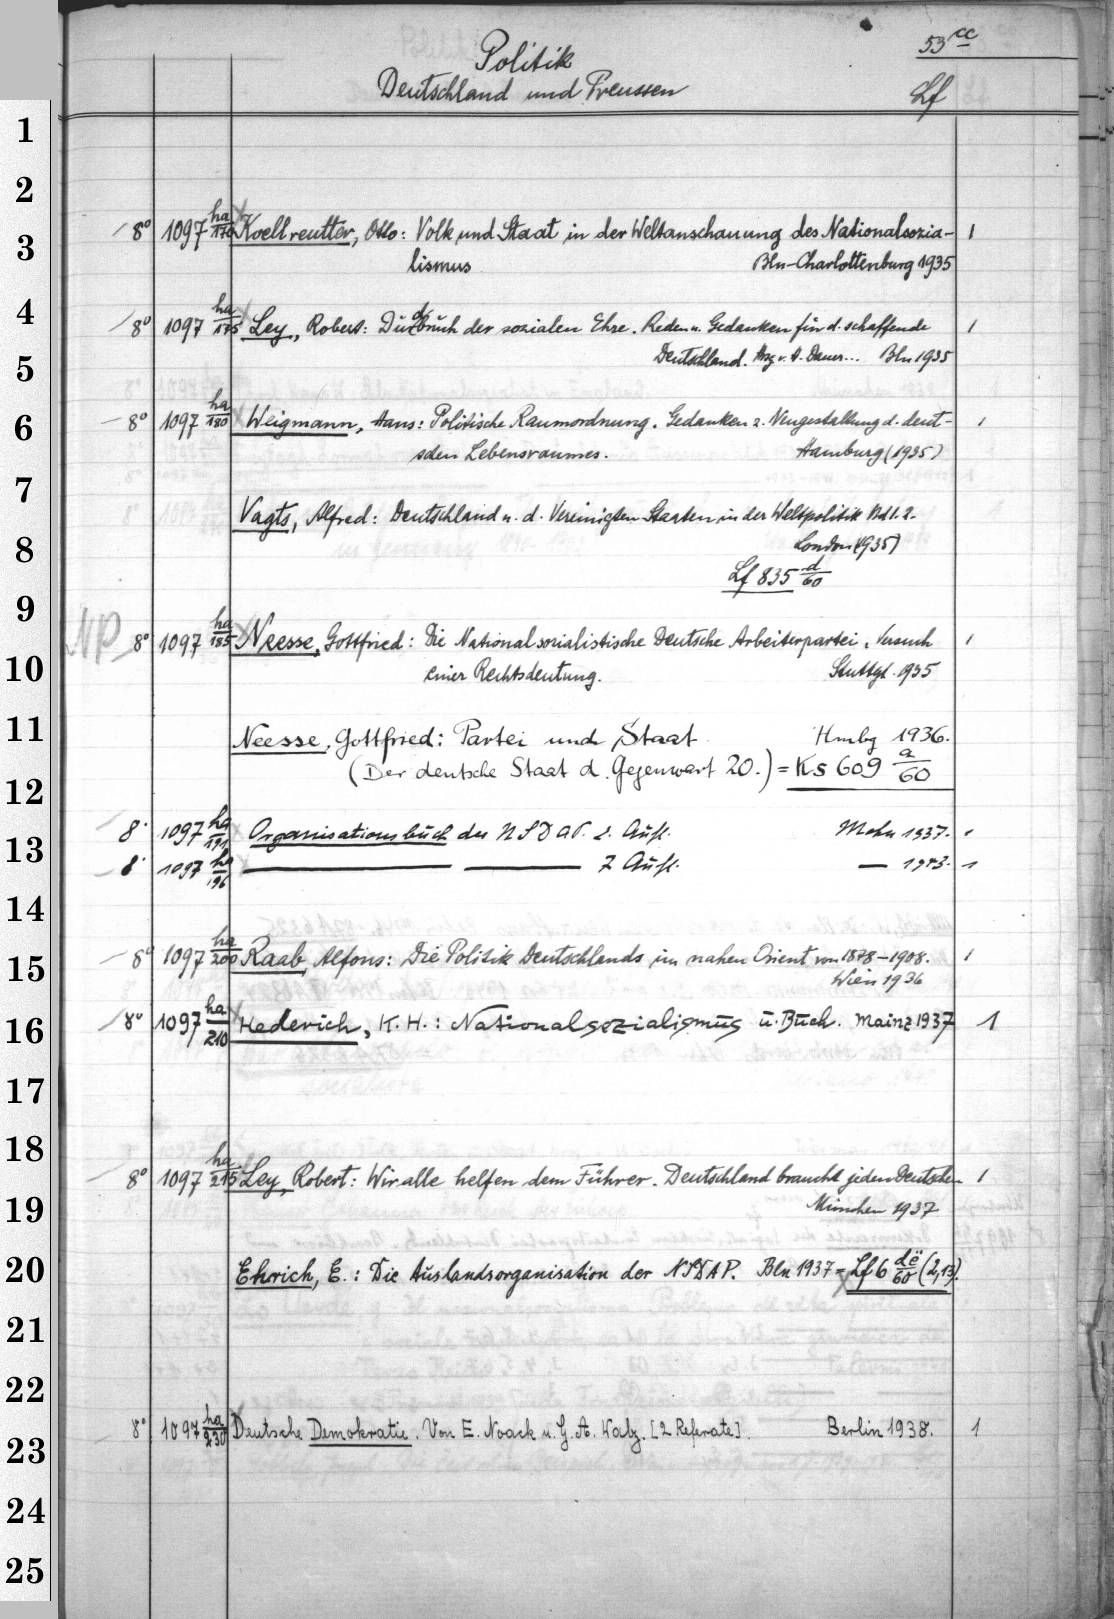 Politik
53 cc
Deutschland und Preussen
Lf
8° 1097 ha/170 Koellreutter, Otto: Volk und Staat in der Weltanschauung des Nationalsozia- 1
lismus Bln-Charlottenburg 1935
8° 1097 ha/175 Ley, Robert: Durchbruch der sozialen Ehre. Reden u. Gedanken für d. schaffende 1
Deutschland. Hrg v. H. Dauer... Bln 1935
8° 1097 ha/180 Weigmann, Hans: Politische Raumordnung. Gedanken z. Neugestaltung d. deut- 1
schen Lebensraumes. Hamburg (1935)
Vagts, Alfred: Deutschland u. d. Vereinigten Staaten in der Weltpolitik Bd 1.2.
London (1935)
Lf 835 d/60
NP 8° 1097 ha/185 Neesse, Gottfried: Die Nationalsozialistische Deutsche Arbeiterpartei, Versuch 1
einer Rechtsdeutung. Stuttgt. 1935
Neesse, Gottfried: Partei und Staat Hmbg 1936.
(Der deutsche Staat d. Gegenwart 20.) = Ks 609 a/60
8° 1097 ha/191 Organisationsbuch der NSDAP. 2. Aufl. Mchn 1937. 1
8° 1097 ha/196 — — 7 Aufl. — 1943. 1
8° 1097 ha/200 Raab, Alfons: Die Politik Deutschlands im nahen Orient von 1878-1908. 1
Wien 1936
8° 1097 ha/210 Hederich, K. H.: Nationalsozialismus u. Buch. Mainz 1937 1
8° 1097 ha/215 Ley, Robert: Wir alle helfen dem Führer. Deutschland braucht jeden Deutschen 1
München 1937
Ehrich, E.: Die Auslandsorganisation der NSDAP. Bln 1937 = Lf 6 dë/60 (2,13).
8° 1097 ha/230 Deutsche Demokratie. Von E. Noack u. G. A. Walz. [2 Referate]. Berlin 1938. 1
1
2
3
4
5
6
7
8
9
10
11
12
13
14
15
16
17
18
19
20
21
22
23
24
25